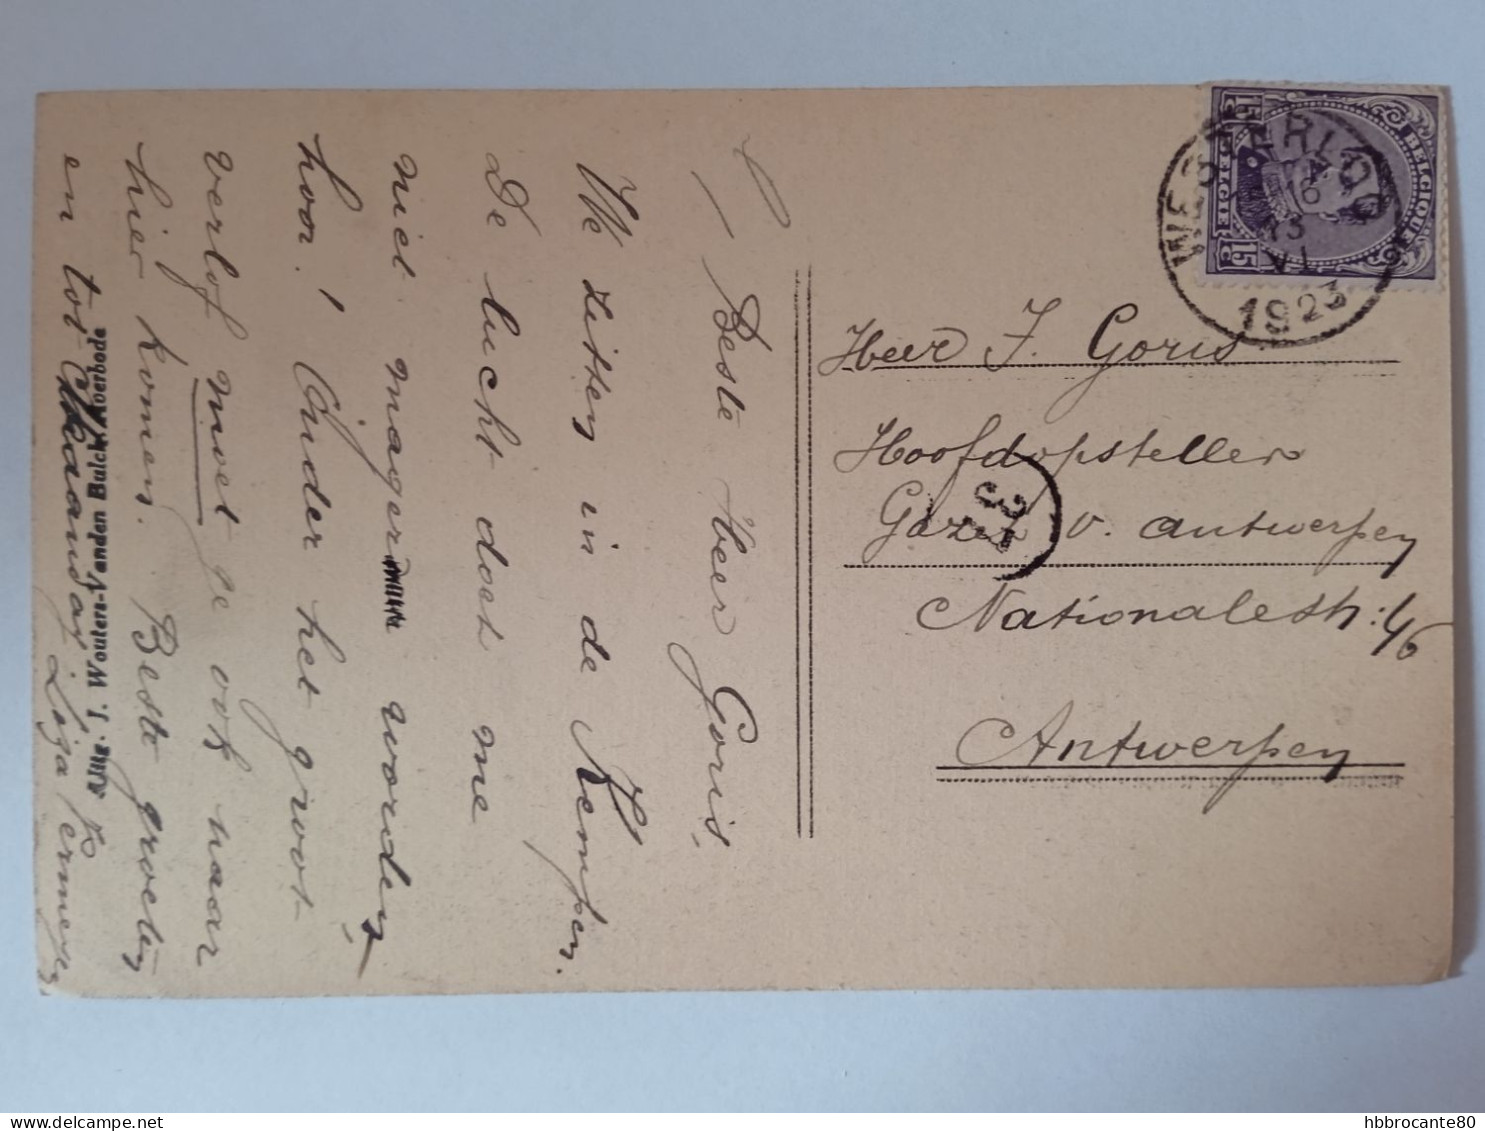 Beste Heer Goris,
We zitten in de Kempen.
De lucht doet me
niet mager worden
hoor! Onder het groot
verlof moet ge ook naar
hier komen. Beste groeten
en tot
Uitg. J. Wouters-Vanden Bulck, Koerbode
Heer J. Goris
Hoofdopsteller
Gazet v. Antwerpen
Nationalestr: 46
Antwerpen
WESTERLOO
16
13
VI
1923
BELGIQUE
BELGIE
15 C
15 C
hbbrocante80